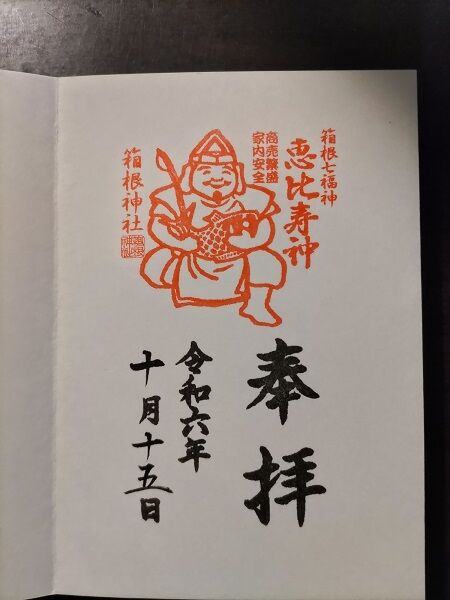 箱根七福神
恵比寿神
商売繁盛
家内安全
箱根神社
奉拝
令和六年
十月十五日